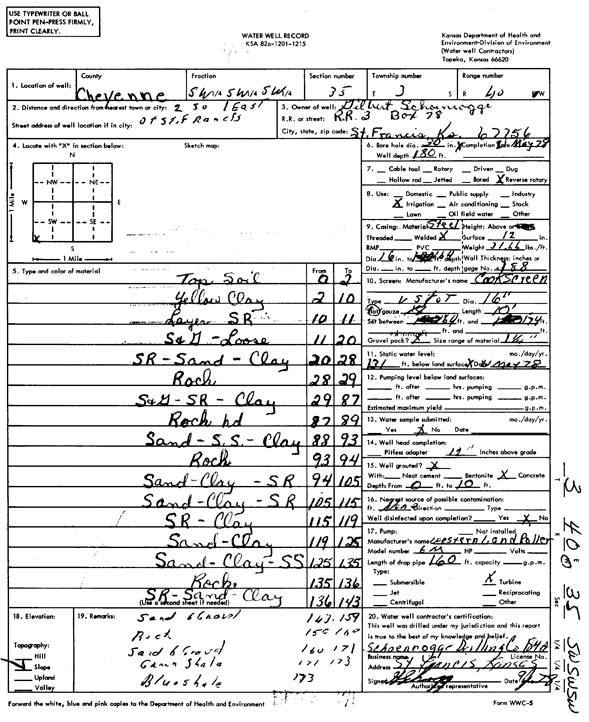 USE TYPEWRITER OR BALL
POINT PEN-PRESS FIRMLY,
PRINT CLEARLY.
WATER WELL RECORD
KSA 82a-1201-1215
Kansas Department of Health and
Environment-Division of Environment
(Water well Contractors)
Topeka, Kansas 66620
1. Location of well: County Cheyenne Fraction SW 1/4 SW 1/4 SW 1/4 Section number 35 Township number T 3 S Range number R 40 W
2. Distance and direction from nearest town or city: 2 So 1 East
of St. Francis
Street address of well location if in city:
3. Owner of well: Gilbert Schoenrogge
R.R. or street: R.R. 3 Box 78
City, state, zip code: St. Francis, Ks. 67756
4. Locate with "X" in section below: Sketch map:
N
NW NE
W E
SW SE
X
S
1 Mile
1 Mile
6. Bore hole dia. 30 in. Completion date May 78
Well depth 180 ft.
7. Cable tool Rotary Driven Dug
Hollow rod Jetted Bored X Reverse rotary
8. Use: Domestic Public supply Industry
X Irrigation Air conditioning Stock
Lawn Oil field water Other
9. Casing: Material Steel Height: Above or
Threaded Welded X Surface 12 in.
RMP PVC Weight 31.66 lbs./ft.
Dia. 16 in. to ft. depth Wall Thickness: inches or
Dia. in. to ft. depth gage No. .188
5. Type and color of material From To
Top Soil 0 2
Yellow Clay 2 10
Layer SR 10 11
S&G - Loose 11 20
SR - Sand - Clay 20 28
Rock 28 29
S&G - SR - Clay 29 87
Rock hd 87 89
Sand - S.S. - Clay 88 93
Rock 93 94
Sand - Clay - SR 94 105
Sand - Clay - SR 105 115
SR - Clay 115 119
Sand - Clay 119 125
Sand - Clay - SS 125 135
Rock 135 136
SR - Sand - Clay 136 143
(Use a second sheet if needed)
10. Screen: Manufacturer's name Cook Screen
Type V Slot Dia. 16"
Slot gauze Length 10'
Set between ft. and 174 ft.
ft. and ft.
Gravel pack? X Size range of material
11. Static water level: mo./day/yr.
131 ft. below land surface Date May 78
12. Pumping level below land surfaces:
ft. after hrs. pumping g.p.m.
ft. after hrs. pumping g.p.m.
Estimated maximum yield g.p.m.
13. Water sample submitted: mo./day/yr.
Yes X No Date
14. Well head completion:
Pitless adapter 12" Inches above grade
15. Well grouted? X
With: Neat cement Bentonite X Concrete
Depth: From 0 ft. to 10 ft.
16. Nearest source of possible contamination:
ft. None Direction Type
Well disinfected upon completion? Yes X No
17. Pump: Not installed
Manufacturer's name Western Land Roller
Model number HP Volts
Length of drop pipe 160 ft. capacity g.p.m.
Type:
Submersible X Turbine
Jet Reciprocating
Centrifugal Other
18. Elevation:
Topography:
Hill
Slope
Upland
Valley
19. Remarks: Sand & Gravel 143-159
Rock 159 160
Sand & Gravel 160 171
Green Shale 171 173
Blue shale 173
20. Water well contractor's certification:
This well was drilled under my jurisdiction and this report
is true to the best of my knowledge and belief.
Schoenrogge Drilling
Business name License No.
Address St Francis, Kansas
Signed Date 78
Authorized representative
T 3 R 40 E W Sec 35 SW SW SW 1/4 1/4 1/4
Forward the white, blue and pink copies to the Department of Health and Environment
Form WWC-5